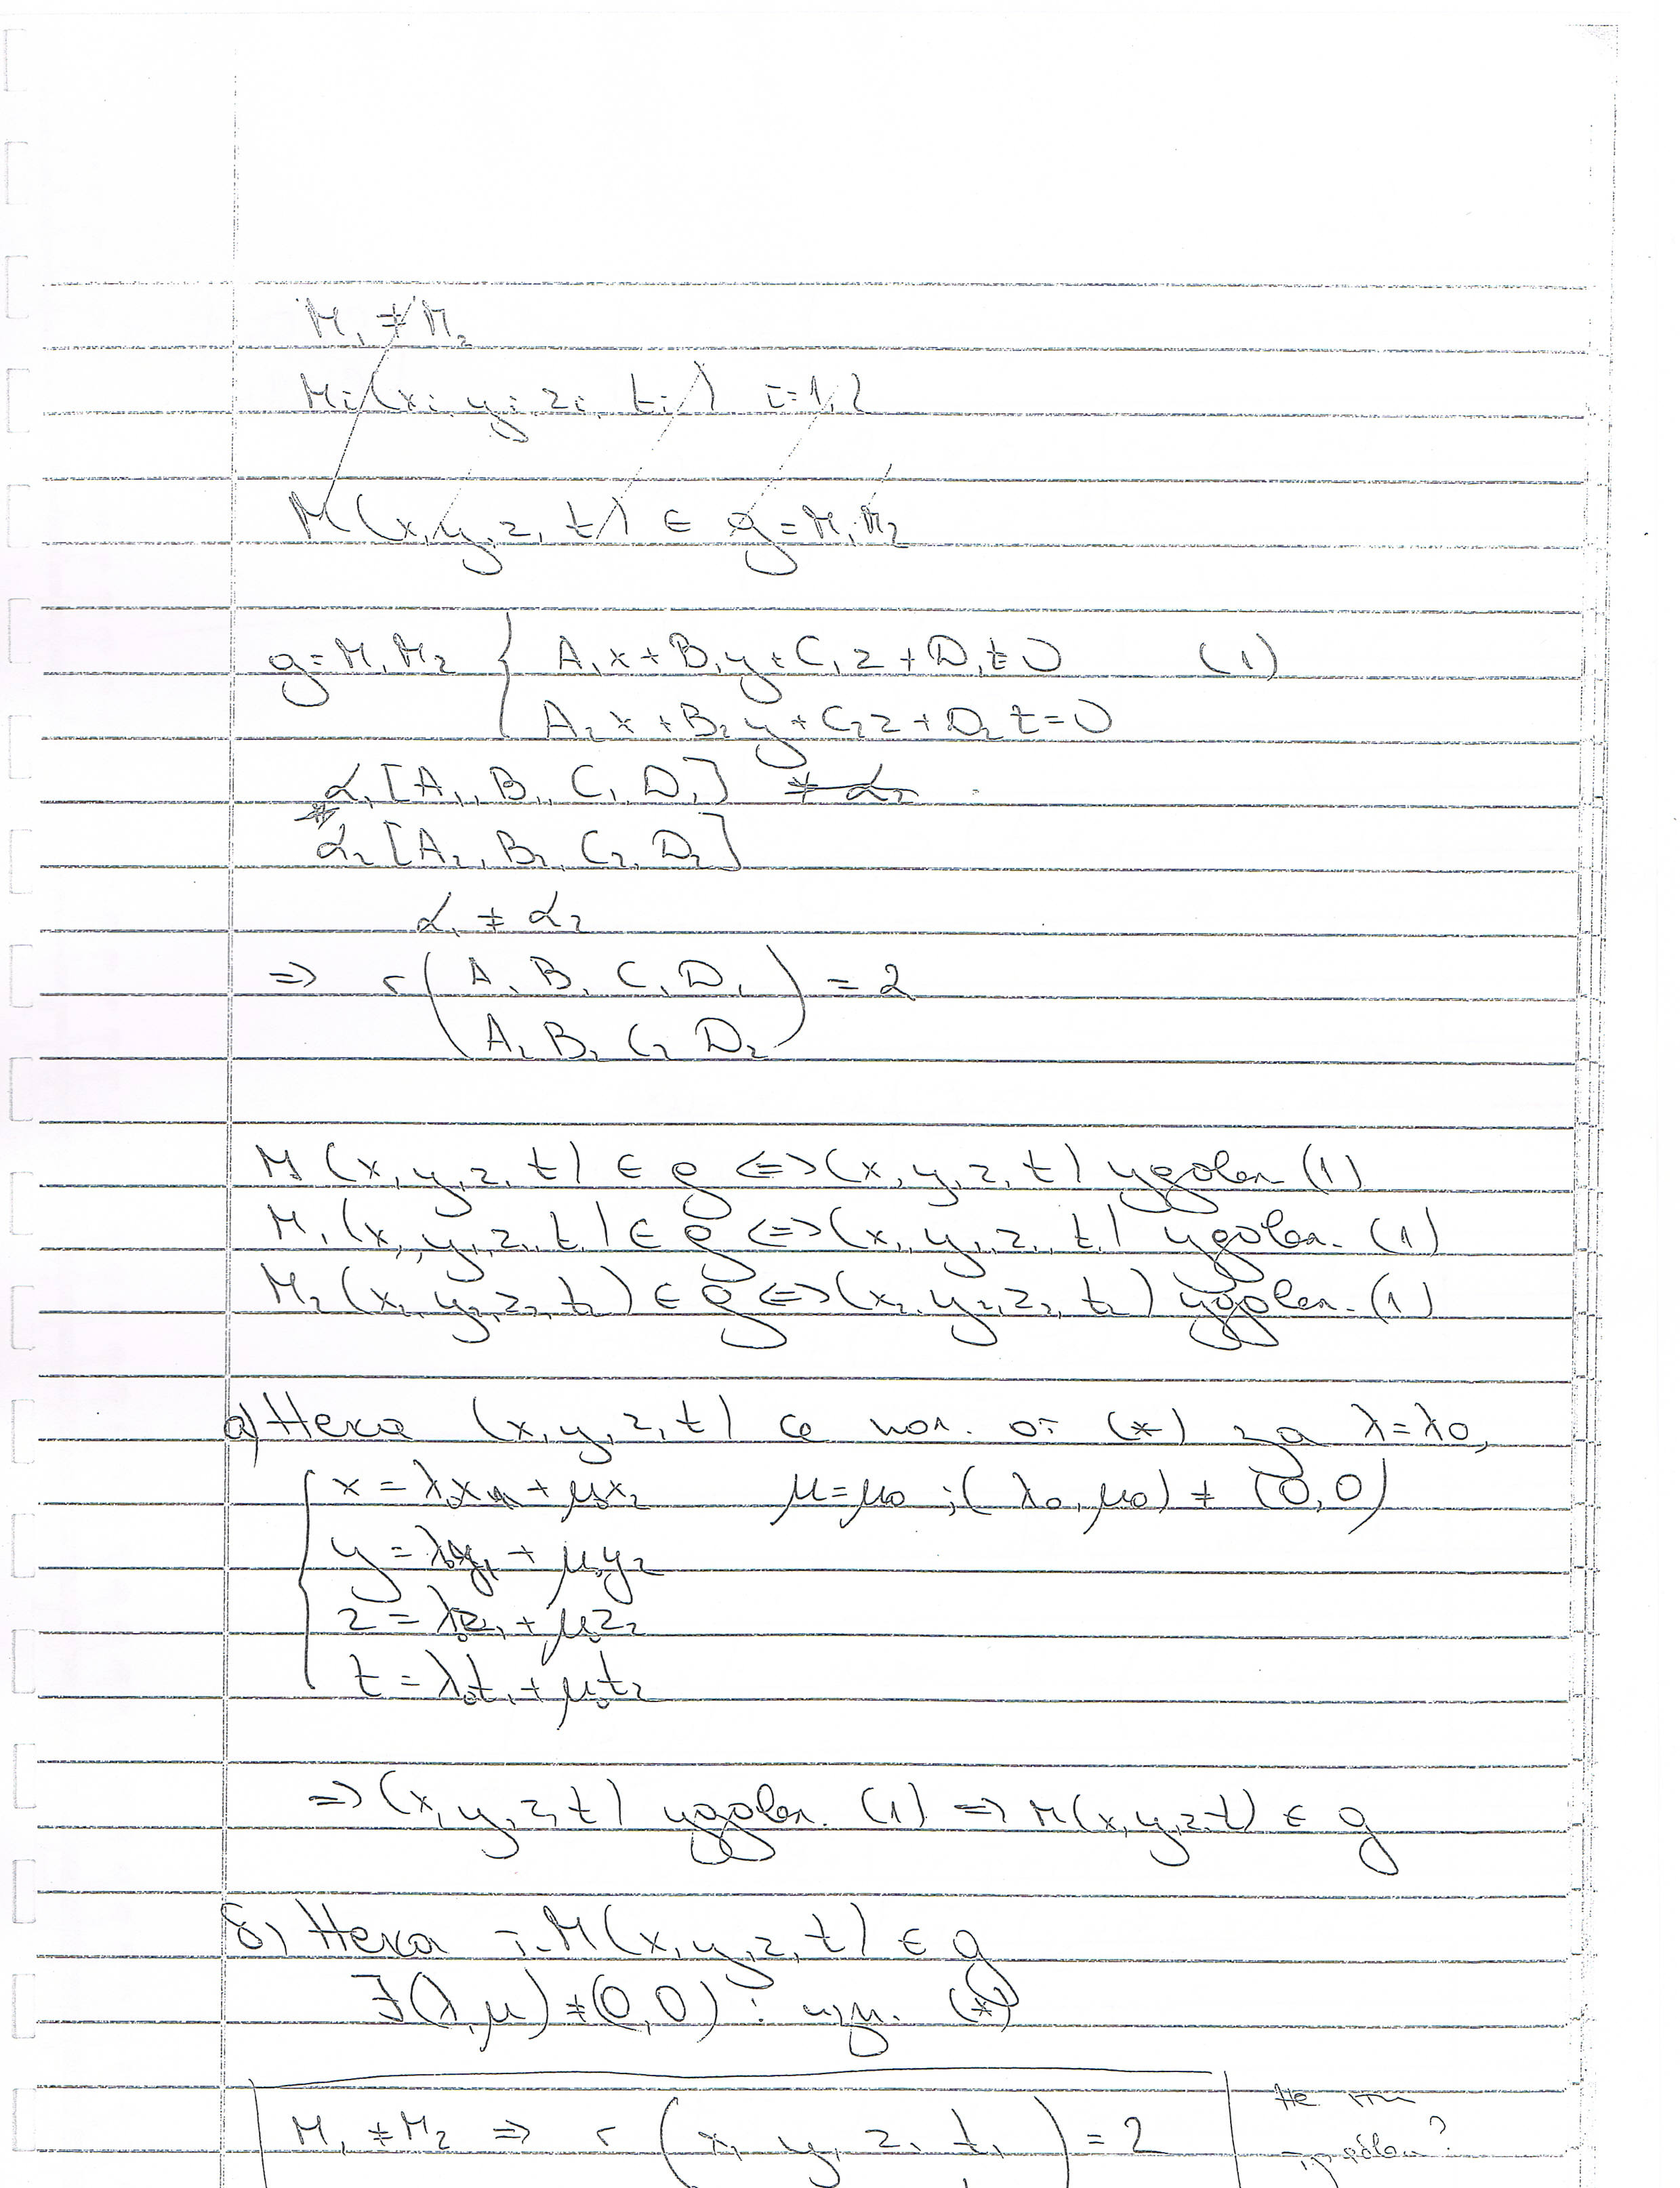 M₁ ≠ M₂
Mᵢ(xᵢ, yᵢ, zᵢ, tᵢ) i=1,2
M(x, y, z, t) ∈ g = M₁M₂
g = M₁M₂ { A₁x + B₁y + C₁z + D₁t = 0 (1)
A₂x + B₂y + C₂z + D₂t = 0
α₁[A₁, B₁, C₁, D₁] ≠ α₂
α₂[A₂, B₂, C₂, D₂]
α₁ ≠ α₂
=> r( A₁ B₁ C₁ D₁ ) = 2
A₂ B₂ C₂ D₂
M(x, y, z, t) ∈ g <=> (x, y, z, t) удовл. (1)
M₁(x₁, y₁, z₁, t₁) ∈ g <=> (x₁, y₁, z₁, t₁) удовл. (1)
M₂(x₂, y₂, z₂, t₂) ∈ g <=> (x₂, y₂, z₂, t₂) удовл. (1)
а) Нека (x, y, z, t) се пол. от (*) за λ=λ₀,
x = λ₀x₁ + μ₀x₂ μ=μ₀ ; (λ₀, μ₀) ≠ (0,0)
y = λ₀y₁ + μ₀y₂
z = λ₀z₁ + μ₀z₂
t = λ₀t₁ + μ₀t₂
=> (x, y, z, t) удовл. (1) => M(x, y, z, t) ∈ g
б) Нека т. M(x, y, z, t) ∈ g
∃(λ, μ) ≠ (0,0) : изп. (*)
M₁ ≠ M₂ => r( x₁ y₁ z₁ t₁ ) = 2
Не
?